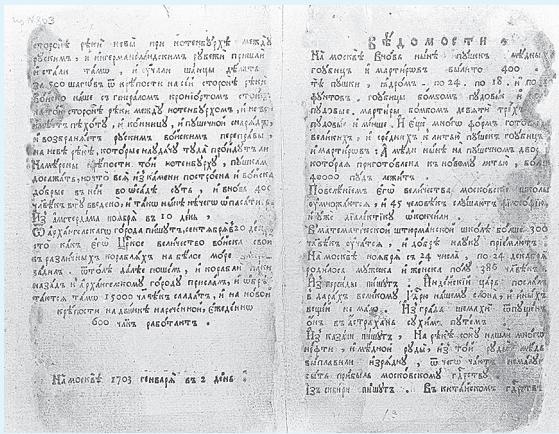 сторонѣ рѣки невы при нотенбурхѣ между
рускимъ, и ингерманляндскимъ рубежи пришли
и стали тамѡ, и ѹчали шанцы дѣлать
за 500 шагѡвъ ѿ крѣпости на сей сторонѣ рѣки
войско наше съ генераломъ кроніортомъ стоитъ
на той сторонѣ рѣки между нотенбурхомъ, и
пѣхоту, и конницу, и пушечной снарядъ,
и возбраняютъ рускимъ воискимъ переправы,
на невѣ рѣкѣ, которые надаютъ туда пройдутъ ли
Намѣрены крѣпости той нотенбурху, пушкамъ
досажать, но что вся из камени построена и войска
добрые въ ней во асадѣ суть, и вновь 400
члвѣкъ въ ту введено, и тамѡ нынѣ нечегѡ ѡпасати
Из амстердама ноября въ 10 день,
Ѿ архангелскагѡ города пишутъ, сентября въ 20 день
что какъ егѡ Црское величество войска свои
въ различныхъ корабляхъ на бѣлое море
ѿтолѣ далѣе пошелъ, и корабли паки
назадъ к архангелскому городу прислалъ, и
тамѡ 15000 члвѣкъ салдатъ, и на новой
крѣпости на двинкѣ нареченной, ежеденно
600 члкъ работаютъ.
На москвѣ 1703 генваря въ 2 день.
ВѢДОМОСТИ.
На Москвѣ вновь нынѣ пушекъ мѣдныхъ
гоубицъ и мартировъ вылито 400.
тѣ пушки, ядромъ, по 24. по 18. и по 12
фунтовъ. гоубицы бомбомъ пудовые и
пудовые, мартиры бомбомъ девяти трехъ
пудовые и менше. И еще много формъ готовыхъ
великихъ, и среднихъ к литью пушекъ гоубицъ
и мартировъ: А мѣди нынѣ на пушечномъ дворѣ,
которая приготовлена къ новому литью, болши
40000 пудъ лежитъ.
Повелѣніемъ егѡ величества московскіе школы
ѹмножаются, и 45 человѣкъ слушаютъ философію,
и уже діалектику ѡкончили.
Въ математической штюрманской школѣ болши 300
члвѣкъ ѹчатся, и добрѣ науку пріемлютъ.
На москвѣ ноября съ 24 числа, по 24 декабря
родилось мужска и женска полу 386 члвѣкъ.
Из персиды пишутъ. Индѣйскій царь послалъ
въ дарахъ великому Гдрю нашему слона, и иныхъ
вещей не малѡ. Из града шемахи ѿпущенъ
онъ въ астрахань сухимъ путемъ.
Из казани пишутъ. На рѣкѣ соку нашли многѡ
нефти, и мѣдной руды, из той руды мѣдь
выплавили изрядну, ѿ чегѡ чаютъ немалую
быть прибыль московскому гдрству.
Из сибири пишутъ. Въ китайскомъ гдрствѣ